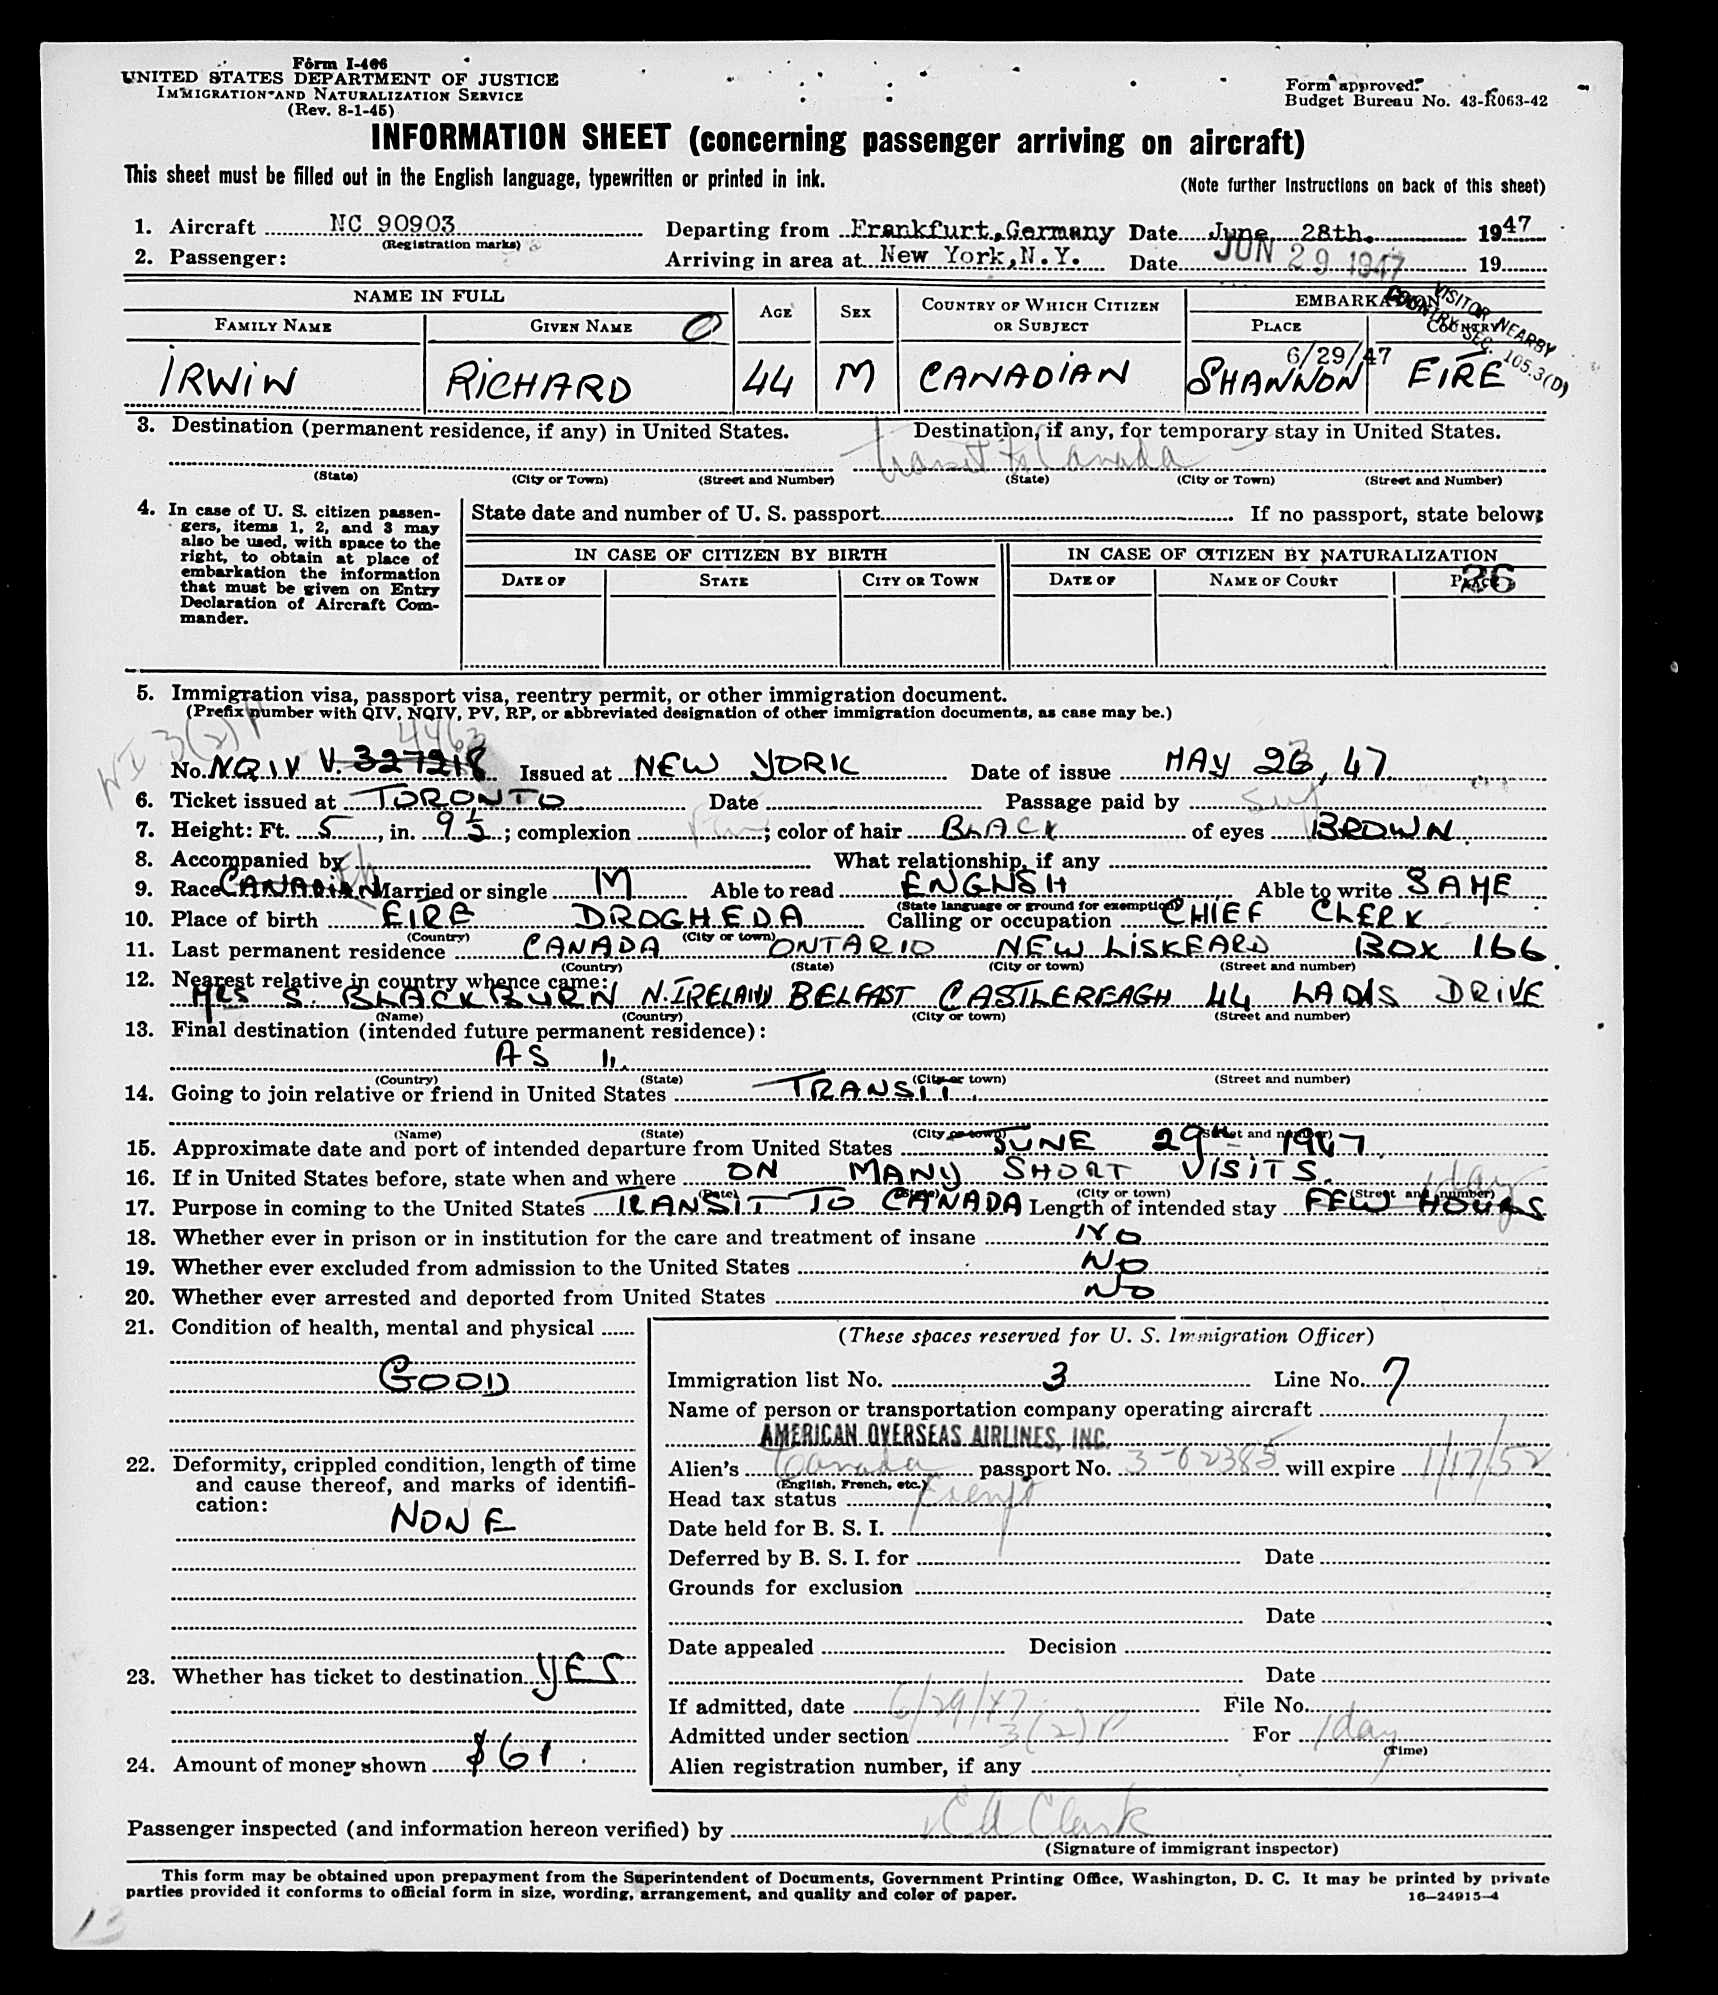 Form I-466
UNITED STATES DEPARTMENT OF JUSTICE
IMMIGRATION AND NATURALIZATION SERVICE
(Rev. 8-1-45)
Form approved.
Budget Bureau No. 43-R063-42
INFORMATION SHEET (concerning passenger arriving on aircraft)
This sheet must be filled out in the English language, typewritten or printed in ink.
(Note further instructions on back of this sheet)
1. Aircraft NC 90903 Departing from Frankfurt, Germany Date June 28th. 1947
(Registration marks)
2. Passenger: Arriving in area at New York, N.Y. Date JUN 29 1947 19
NAME IN FULL AGE SEX COUNTRY OF WHICH CITIZEN OR SUBJECT EMBARKATION
FAMILY NAME GIVEN NAME PLACE COUNTRY
VISITOR NEARBY
COUNTRY SEC. 105.3(D)
6/29/47
IRWIN RICHARD 44 M CANADIAN SHANNON EIRE
3. Destination (permanent residence, if any) in United States. Destination, if any, for temporary stay in United States.
Transit to Canada
(State) (City or Town) (Street and Number) (State) (City or Town) (Street and Number)
4. In case of U. S. citizen passen-
gers, items 1, 2, and 3 may
also be used, with space to the
right, to obtain at place of
embarkation the information
that must be given on Entry
Declaration of Aircraft Com-
mander.
State date and number of U. S. passport If no passport, state below:
IN CASE OF CITIZEN BY BIRTH IN CASE OF CITIZEN BY NATURALIZATION
DATE OF STATE CITY OR TOWN DATE OF NAME OF COURT PLACE
36
5. Immigration visa, passport visa, reentry permit, or other immigration document.
(Prefix number with QIV, NQIV, PV, RP, or abbreviated designation of other immigration documents, as case may be.)
3(2)P 4463
No. NQIV V. 327218 Issued at NEW YORK Date of issue MAY 23, 47
6. Ticket issued at TORONTO Date Passage paid by self
7. Height: Ft. 5, in. 9½; complexion Fair; color of hair BLACK of eyes BROWN
8. Accompanied by What relationship, if any
9. Race CANADIAN Married or single M Able to read ENGLISH Able to write SAME
(State language or ground for exemption)
10. Place of birth EIRE DROGHEDA Calling or occupation CHIEF CLERK
(Country) (City or town)
11. Last permanent residence CANADA ONTARIO NEW LISKEARD BOX 166
(Country) (State) (City or town) (Street and number)
12. Nearest relative in country whence came:
MRS S. BLACKBURN N. IRELAND BELFAST CASTLEREAGH 44 LADAS DRIVE
(Name) (Country) (City or town) (Street and number)
13. Final destination (intended future permanent residence):
AS 11.
(Country) (State) (City or town) (Street and number)
14. Going to join relative or friend in United States TRANSIT.
(Name) (State) (City or town) (Street and number)
15. Approximate date and port of intended departure from United States JUNE 29th 1947
16. If in United States before, state when and where ON MANY SHORT VISITS.
(Date) (State) (City or town) (Street and number)
1 day
17. Purpose in coming to the United States TRANSIT TO CANADA Length of intended stay FEW HOURS
18. Whether ever in prison or in institution for the care and treatment of insane NO
19. Whether ever excluded from admission to the United States NO
20. Whether ever arrested and deported from United States NO
21. Condition of health, mental and physical
GOOD
22. Deformity, crippled condition, length of time
and cause thereof, and marks of identifi-
cation:
NONE
23. Whether has ticket to destination YES
24. Amount of money shown $61
(These spaces reserved for U. S. Immigration Officer)
Immigration list No. 3 Line No. 7
Name of person or transportation company operating aircraft
AMERICAN OVERSEAS AIRLINES, INC.
Alien's Canada passport No. 3-02385 will expire 1/17/52
(English, French, etc.)
Head tax status Exempt
Date held for B. S. I.
Deferred by B. S. I. for Date
Grounds for exclusion
Date
Date appealed Decision
Date
If admitted, date 6/29/47 File No.
Admitted under section 3(2)P For 1 day
(Time)
Alien registration number, if any
Passenger inspected (and information hereon verified) by C A Clark
(Signature of immigrant inspector)
This form may be obtained upon prepayment from the Superintendent of Documents, Government Printing Office, Washington, D. C. It may be printed by private
parties provided it conforms to official form in size, wording, arrangement, and quality and color of paper.
16—24915-4
13